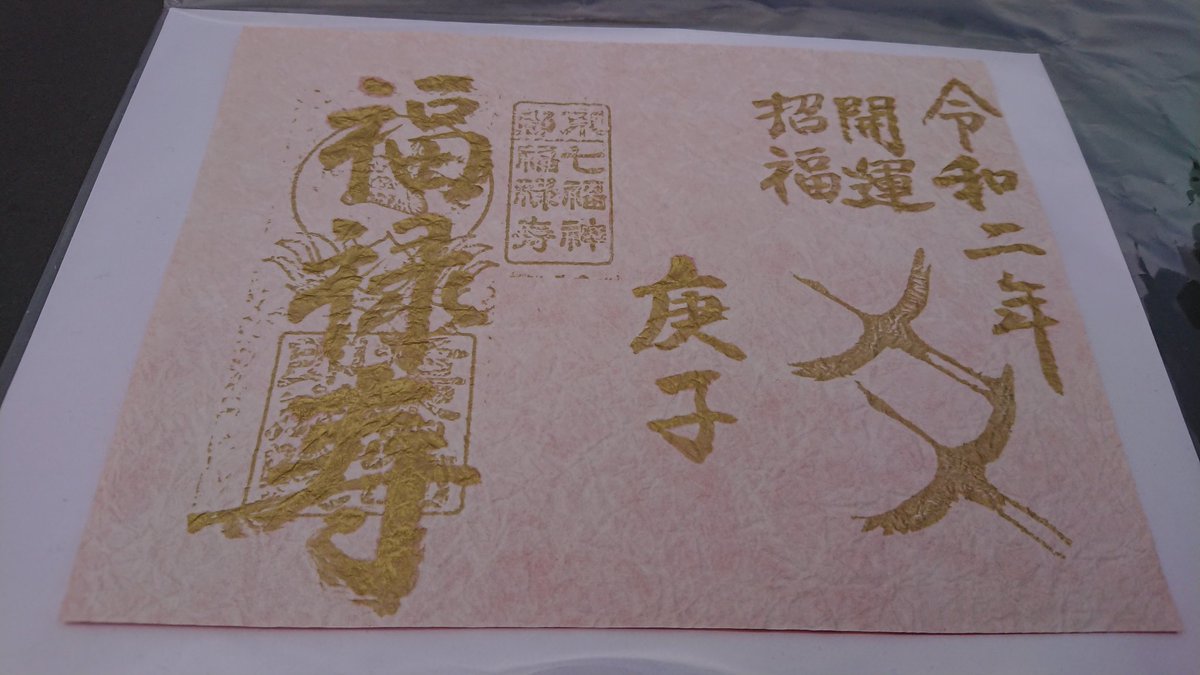 令和二年
開運
招福
庚子
七福神
福禄寿
福禄寿